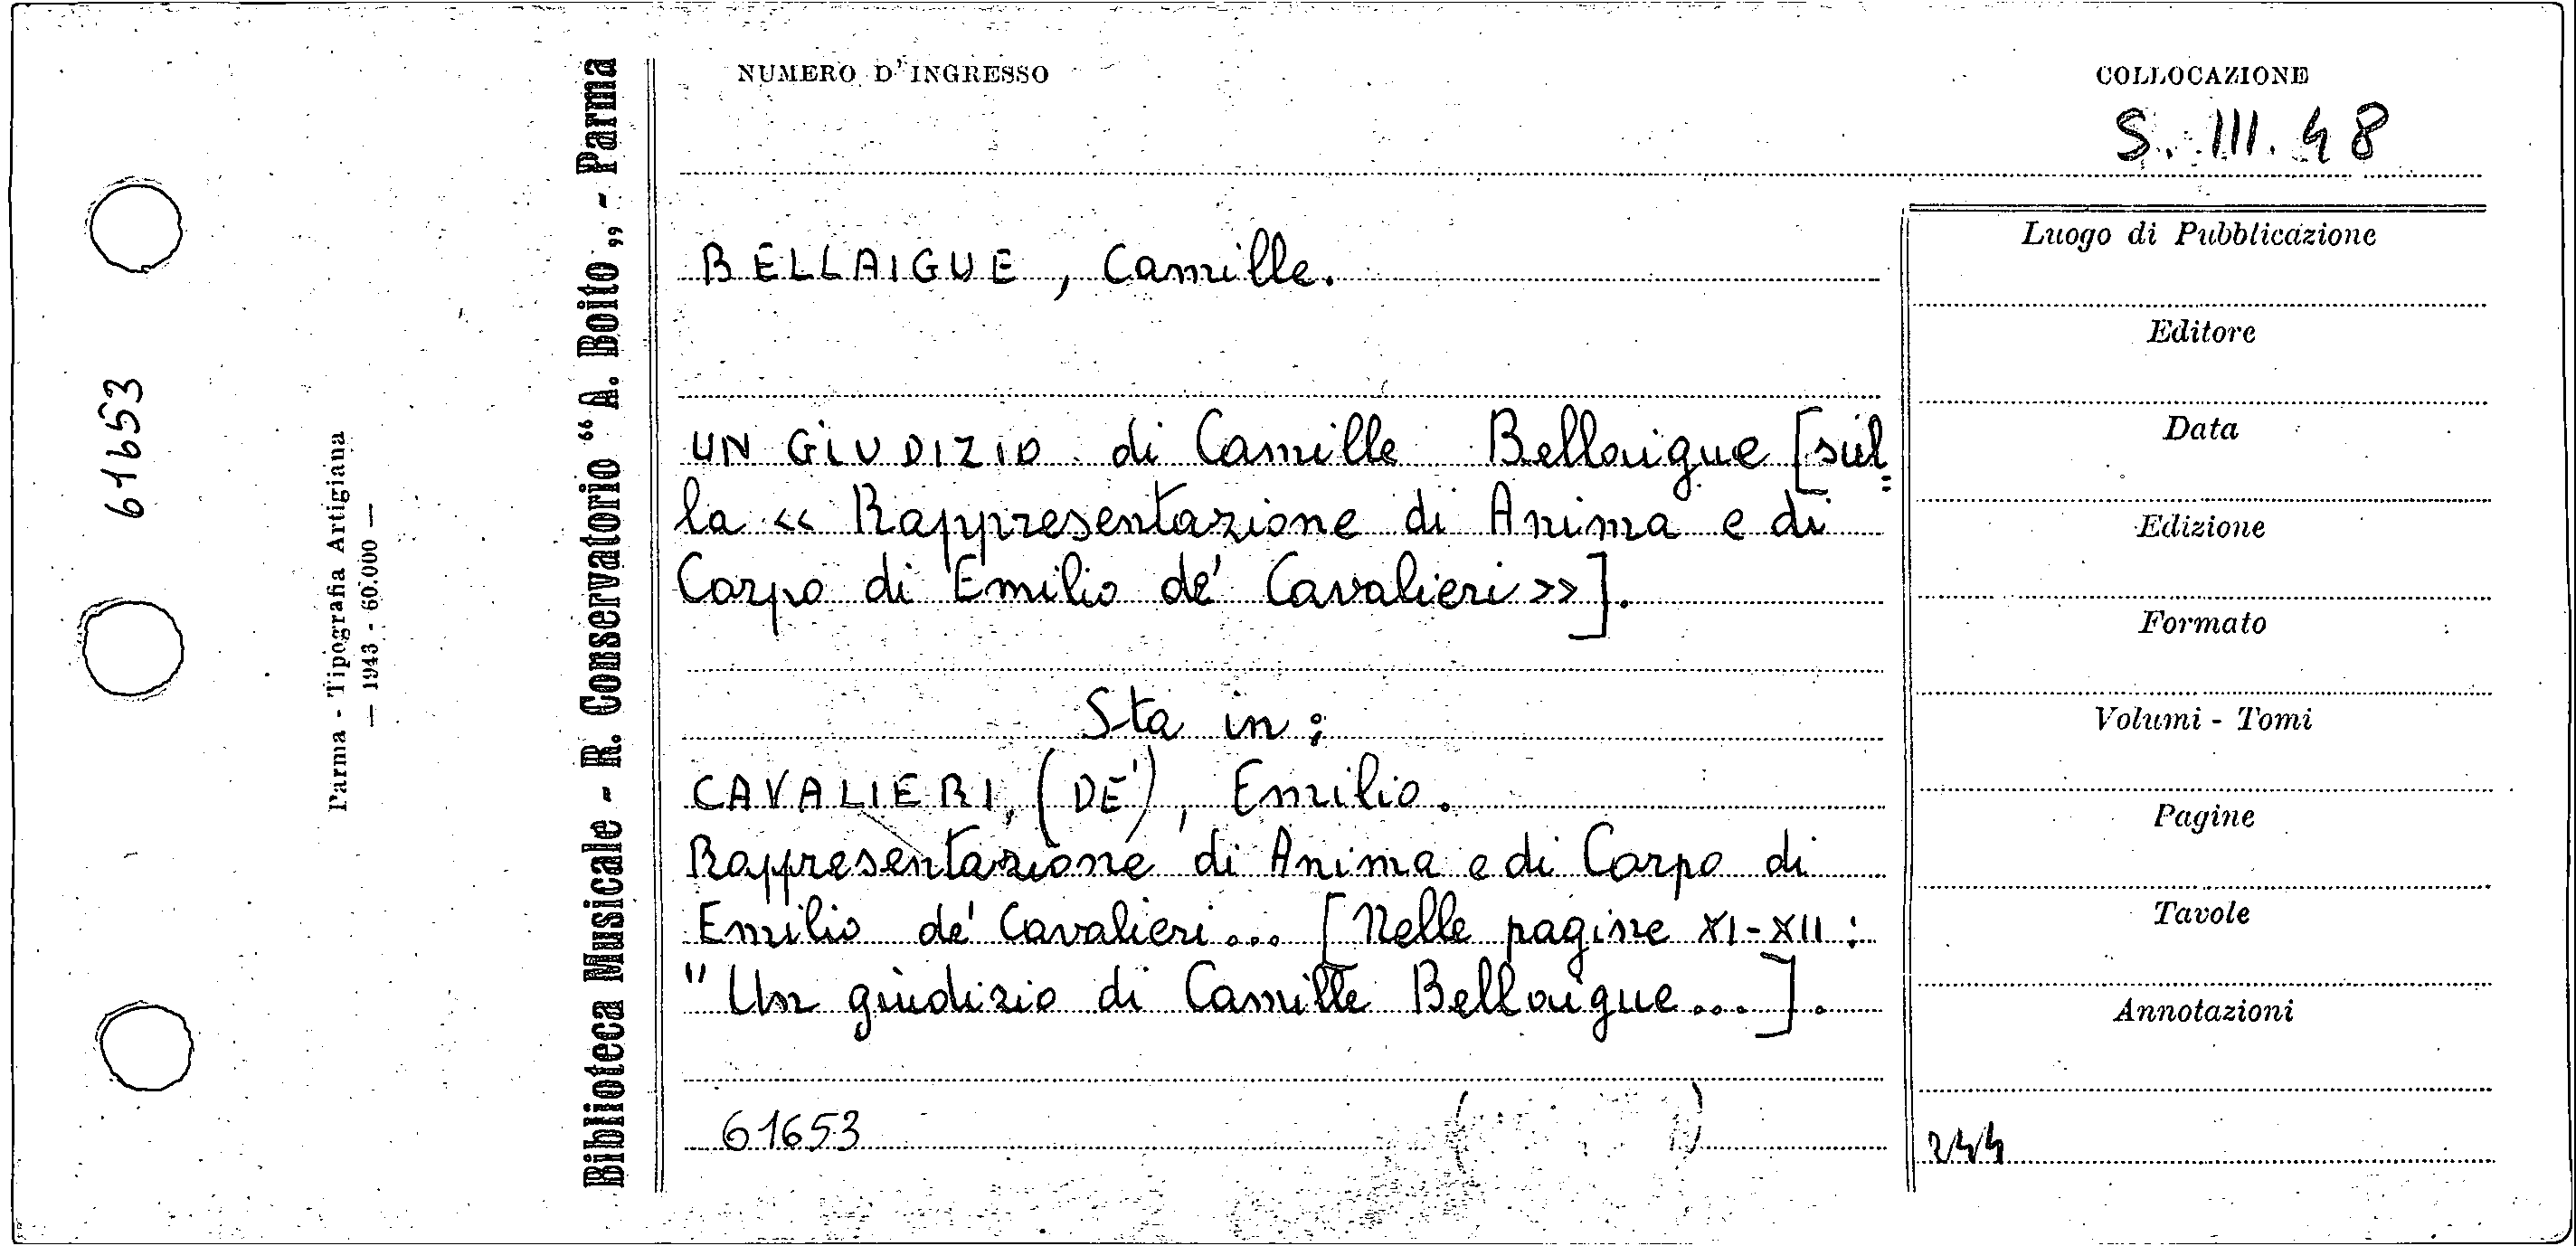 NUMERO D'INGRESSO
COLLOCAZIONE
S. III. 48
BELLAIGUE, Camille.
UN GIUDIZIO di Camille Bellaigue [sul=
la « Rappresentazione di Anima e di
Corpo di Emilio de' Cavalieri »].
Sta in:
CAVALIERI, (DE'), Emilio.
Rappresentazione di Anima e di Corpo di
Emilio de' Cavalieri... [Nelle pagine XI-XII:
"Un giudizio di Camille Bellaigue...].
61653
Luogo di Pubblicazione
Editore
Data
Edizione
Formato
Volumi - Tomi
Pagine
Tavole
Annotazioni
244
Biblioteca Musicale - R. Conservatorio “A. Boito„ - Parma
Parma - Tipografia Artigiana
— 1943 - 60.000 —
61653